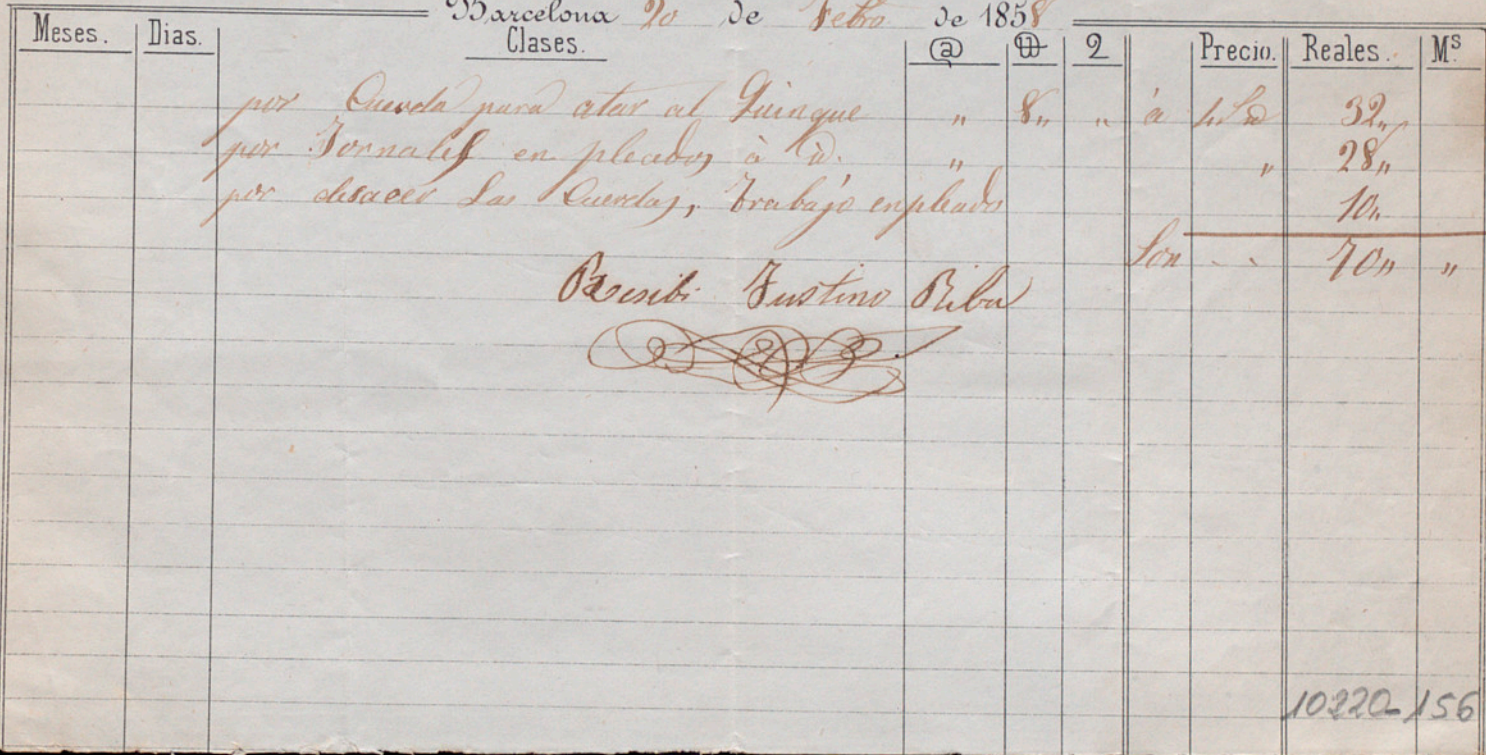 Barcelona 20 de Febro de 1858
Meses. Dias. Clases. @ 2 Precio. Reales. Ms.
por Cuerda para atar al Quinque " 8" " á 32"
por Jornales en pleados à id. " " 28"
por desacer Las Cuerdas, Trabajo enpleado 10"
Son 70" "
Recibi Justino Riba
10220-156